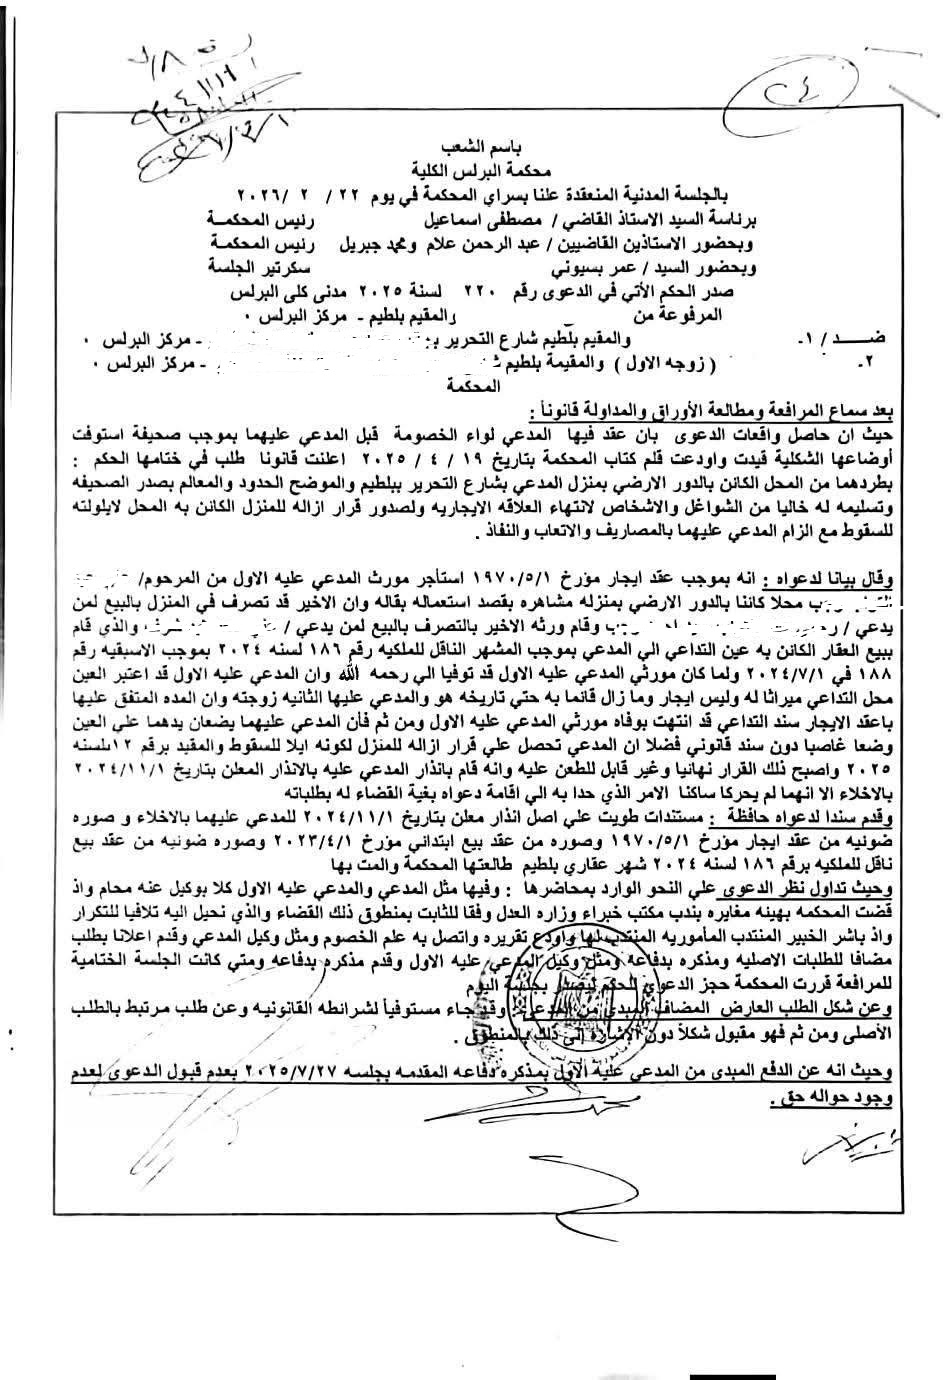 باسم الشعب
محكمة البرلس الكلية
بالجلسة المدنية المنعقدة علنا بسراي المحكمة في يوم ٢٢ / ٢ /٢٠٢٦
برئاسة السيد الاستاذ القاضي / مصطفى اسماعيل رئيس المحكمـة
وبحضور الاستاذين القاضيين / عبد الرحمن علام ومحمد جبريل رئيس المحكمة
وبحضور السيد / عمر بسيوني سكرتير الجلسة
صدر الحكم الأتي في الدعوى رقم ٢٢٠ لسنة ٢٠٢٥ مدنى كلى البرلس
المرفوعة من والمقيم بلطيم - مركز البرلس ٠
ضــــد / ١- والمقيم بلطيم شارع التحرير - مركز البرلس ٠
٢- ( زوجه الاول ) والمقيمة بلطيم - مركز البرلس ٠
المحكمة
بعد سماع المرافعة ومطالعة الأوراق والمداولة قانوناً :
حيث ان حاصل واقعات الدعوى بان عقد فيها المدعي لواء الخصومة قبل المدعي عليهما بموجب صحيفة استوفت
أوضاعها الشكلية قيدت واودعت قلم كتاب المحكمة بتاريخ ١٩ / ٤ / ٢٠٢٥ اعلنت قانونا طلب في ختامها الحكم :
بطردهما من المحل الكائن بالدور الارضي بمنزل المدعي بشارع التحرير ببلطيم والموضح الحدود والمعالم بصدر الصحيفه
وتسليمه له خاليا من الشواغل والاشخاص لانتهاء العلاقه الايجاريه ولصدور قرار ازاله للمنزل الكائن به المحل لايلولته
للسقوط مع الزام المدعي عليهما بالمصاريف والاتعاب والنفاذ .
وقال بيانا لدعواه : انه بموجب عقد ايجار مؤرخ ١٩٧٠/٥/١ استأجر مورث المدعي عليه الاول من المرحوم/
محلا كائنا بالدور الارضي بمنزله مشاهره بقصد استعماله بقاله وان الاخير قد تصرف في المنزل بالبيع لمن
يدعي / وقام ورثه الاخير بالتصرف بالبيع لمن يدعي / والذي قام
ببيع العقار الكائن به عين التداعي الي المدعي بموجب المشهر الناقل للملكيه رقم ١٨٦ لسنه ٢٠٢٤ بموجب الاسبقيه رقم
١٨٨ في ٢٠٢٤/٧/١ ولما كان مورثي المدعي عليه الاول قد توفيا الي رحمه الله وان المدعي عليه الاول قد اعتبر العين
محل التداعي ميراثا له وليس ايجار وما زال قائما به حتي تاريخه هو والمدعي عليها الثانيه زوجته وان المده المتفق عليها
باعقد الايجار سند التداعي قد انتهت بوفاه مورثي المدعي عليه الاول ومن ثم فأن المدعي عليهما يضعان يدهما علي العين
وضعا غاصبا دون سند قانوني فضلا ان المدعي تحصل علي قرار ازاله للمنزل لكونه ايلا للسقوط والمقيد برقم ١٢ لسنه
٢٠٢٥ واصبح ذلك القرار نهائيا وغير قابل للطعن عليه وانه قام بانذار المدعي عليه بالانذار المعلن بتاريخ ٢٠٢٤/١١/١
بالاخلاء الا انهما لم يحركا ساكنا الامر الذي حدا به الي اقامة دعواه بغية القضاء له بطلباته
وقدم سندا لدعواه حافظة : مستندات طويت علي اصل انذار معلن بتاريخ ٢٠٢٤/١١/١ للمدعي عليهما بالاخلاء و صوره
ضوئيه من عقد ايجار مؤرخ ١٩٧٠/٥/١ وصوره من عقد بيع ابتدائي مؤرخ ٢٠٢٣/٤/١ وصوره ضوئيه من عقد بيع
ناقل للملكيه برقم ١٨٦ لسنه ٢٠٢٤ شهر عقاري بلطيم طالعتها المحكمة والمت بها
وحيث تداول نظر الدعوى علي النحو الوارد بمحاضرها : وفيها مثل المدعي والمدعي عليه الاول كلا بوكيل عنه محام واذ
قضت المحكمه بهيئه مغايره بندب مكتب خبراء وزاره العدل وفقا للثابت بمنطوق ذلك القضاء والذي نحيل اليه تلافيا للتكرار
واذ باشر الخبير المنتدب المأموريه المنتدب لها واودع تقريره واتصل به علم الخصوم ومثل وكيل المدعي وقدم اعلانا بطلب
مضافا للطلبات الاصليه ومذكره بدفاعه ومثل وكيل المدعي عليه الاول وقدم مذكره بدفاعه ومتي كانت الجلسة الختامية
للمرافعة قررت المحكمة حجز الدعوي للحكم ليصدر بجلسة اليوم
وعن شكل الطلب العارض المضاف المبدى من المدعي : وقد جاء مستوفياً لشرائطه القانونيه وعن طلب مرتبط بالطلب
الأصلى ومن ثم فهو مقبول شكلاً دون الإشارة إلى ذلك بالمنطوق .
وحيث انه عن الدفع المبدى من المدعي عليه الاول بمذكره دفاعه المقدمه بجلسه ٢٠٢٥/٧/٢٧ بعدم قبول الدعوى لعدم
وجود حواله حق .